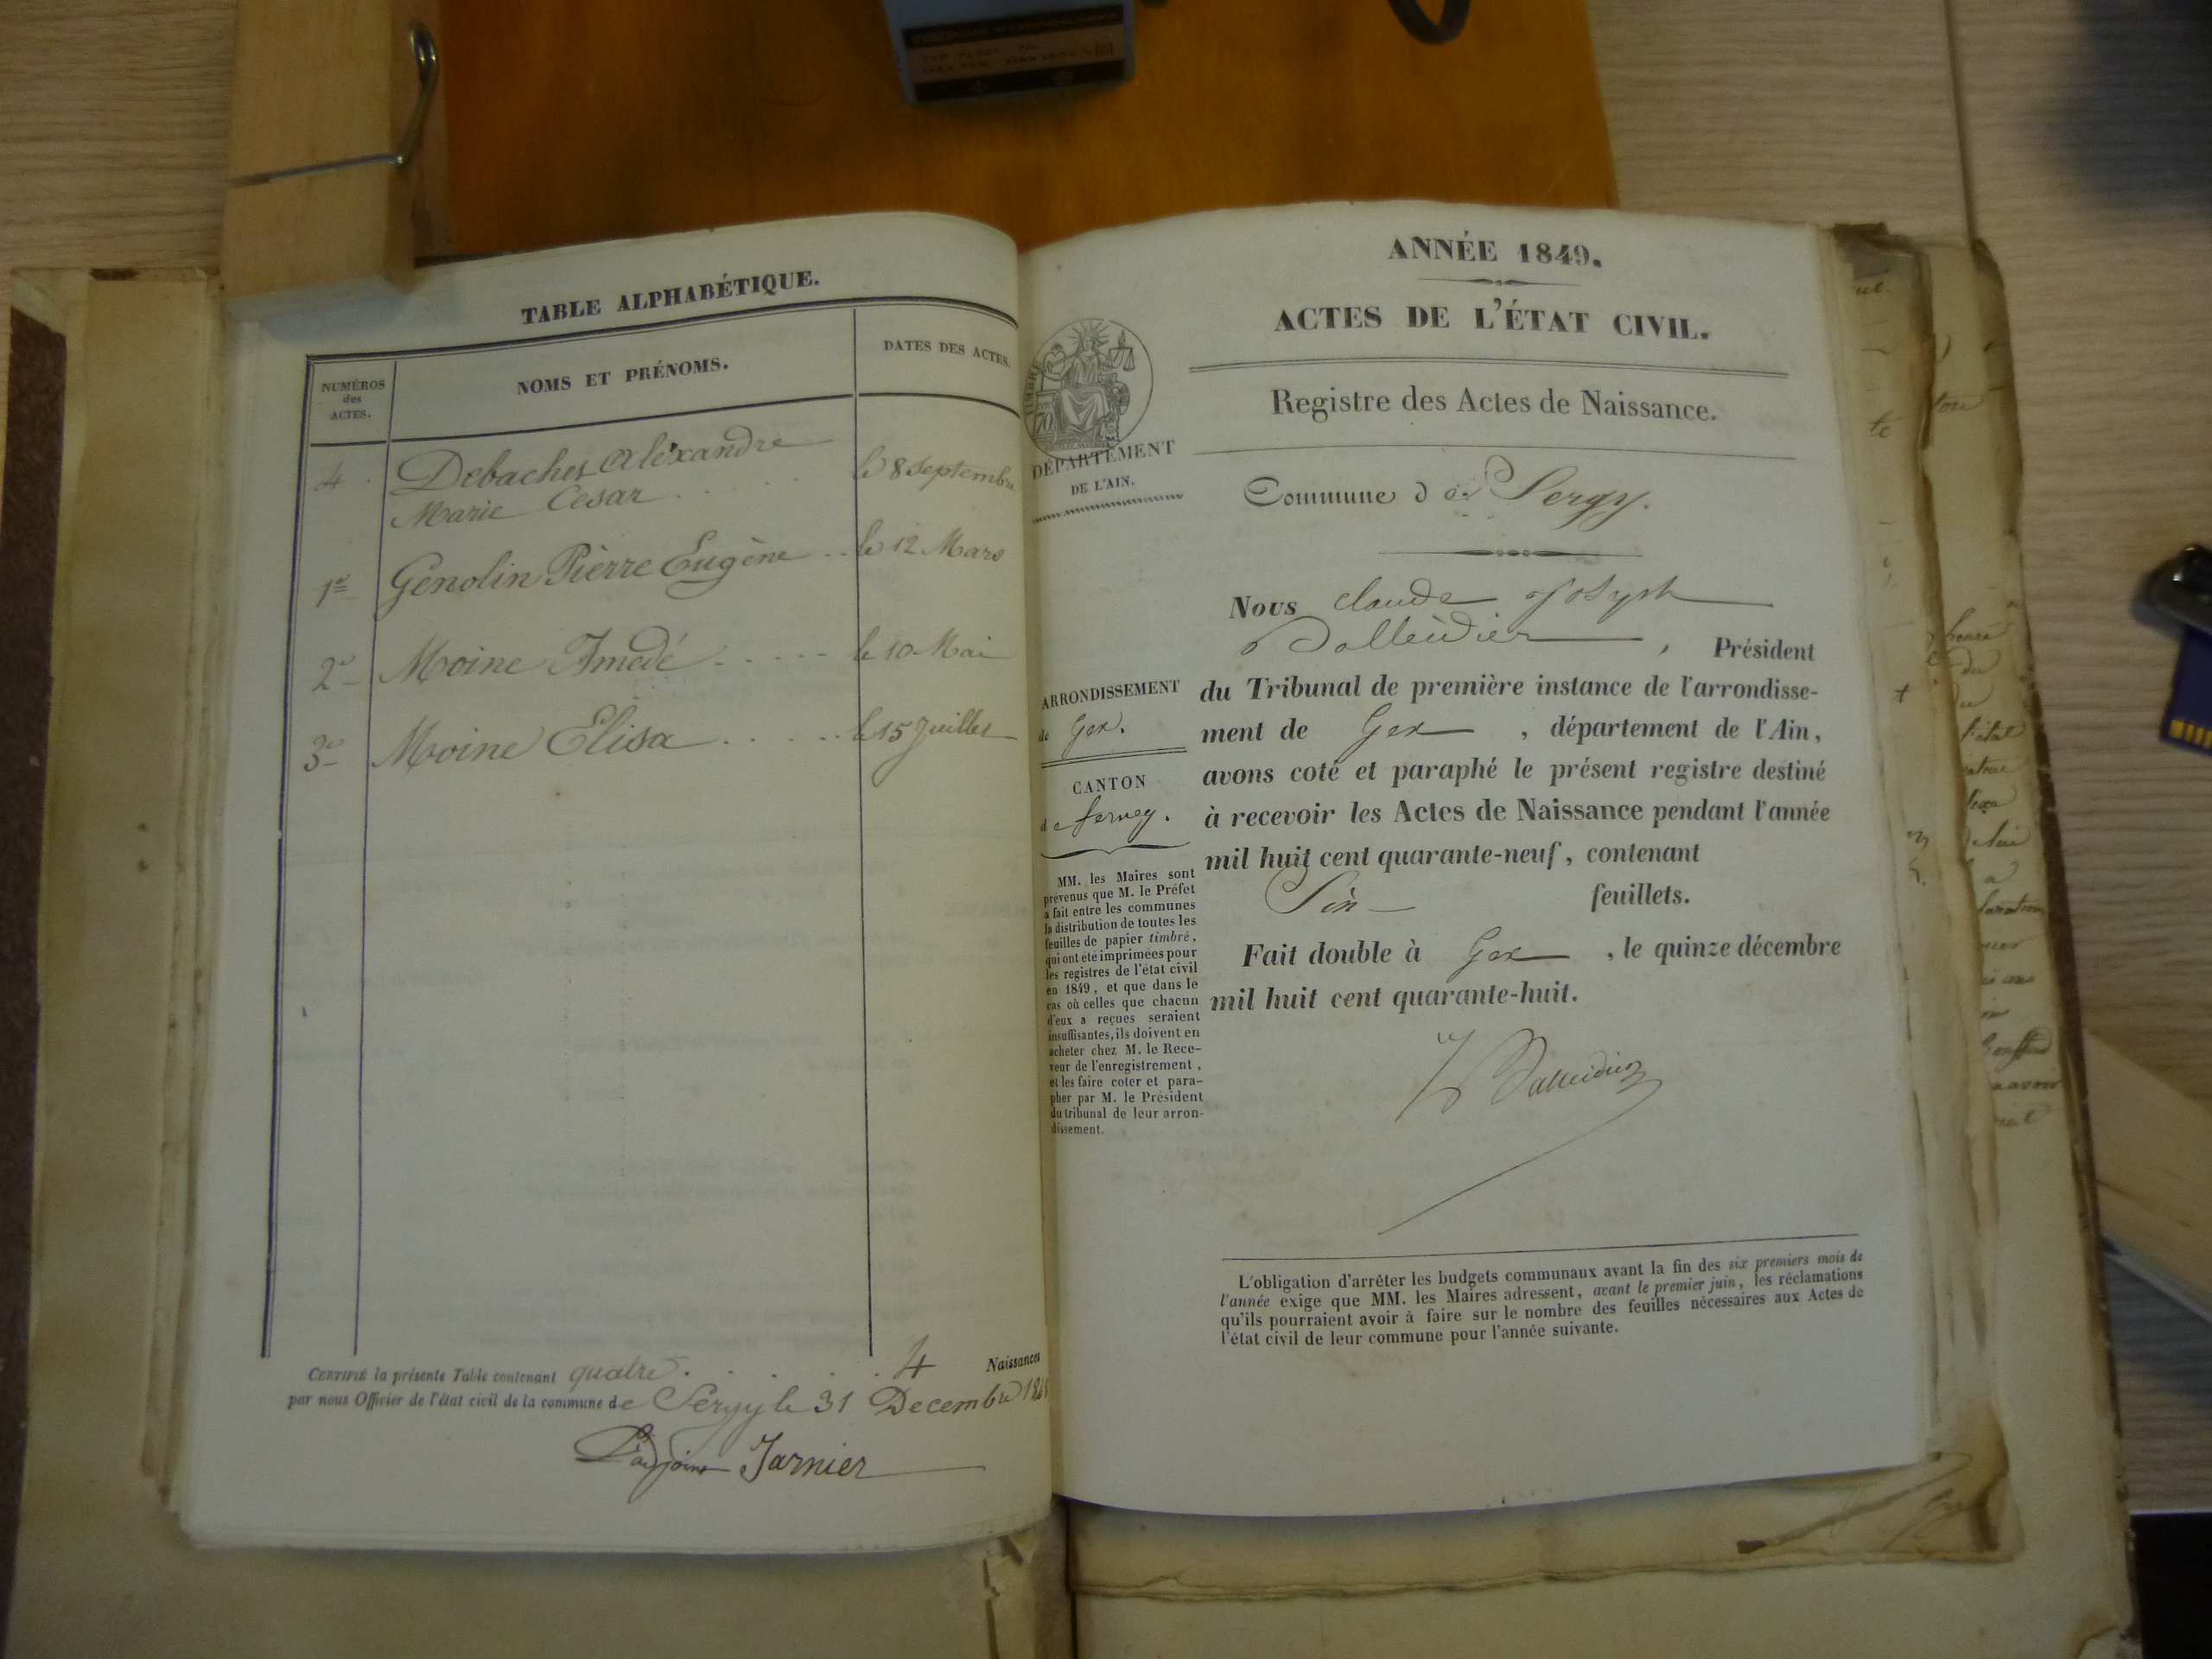 TABLE ALPHABÉTIQUE.
NUMÉROS
des
ACTES.
NOMS ET PRÉNOMS.
DATES DES ACTES.
4 Debaches Alexandre
Marie Cesar le 8 Septembre
1re Génolin Pièrre Eugène le 12 Mars
2e Moine Amedé le 10 Mai
3e Moine Elisa le 15 Juillet
CERTIFIÉ la présente Table contenant quatre 4 Naissances
par nous Officier de l'état civil de la commune de Sergy le 31 Decembre
L'adjoint Jarnier
ANNÉE 1849.
ACTES DE L'ÉTAT CIVIL.
Registre des Actes de Naissance.
TIMBRE
DÉPARTEMENT
DE L'AIN.
Commune de Sergy.
Nous Claude Joseph
, Président
du Tribunal de première instance de l'arrondisse-
ment de Gex , département de l'Ain,
avons coté et paraphé le présent registre destiné
à recevoir les Actes de Naissance pendant l'année
mil huit cent quarante-neuf, contenant
feuillets.
Fait double à Gex , le quinze décembre
mil huit cent quarante-huit.
ARRONDISSEMENT
de Gex.
CANTON
de ferney.
MM. les Maires sont
prévenus que M. le Préfet
a fait entre les communes
la distribution de toutes les
feuilles de papier timbré,
qui ont été imprimées pour
les registres de l'état civil
en 1849, et que dans le
cas où celles que chacun
d'eux a reçues seraient
insuffisantes, ils doivent en
acheter chez M. le Rece-
veur de l'enregistrement,
et les faire coter et para-
pher par M. le Président
du tribunal de leur arron-
dissement.
L'obligation d'arrêter les budgets communaux avant la fin des six premiers mois de
l'année exige que MM. les Maires adressent, avant le premier juin, les réclamations
qu'ils pourraient avoir à faire sur le nombre des feuilles nécessaires aux Actes de
l'état civil de leur commune pour l'année suivante.